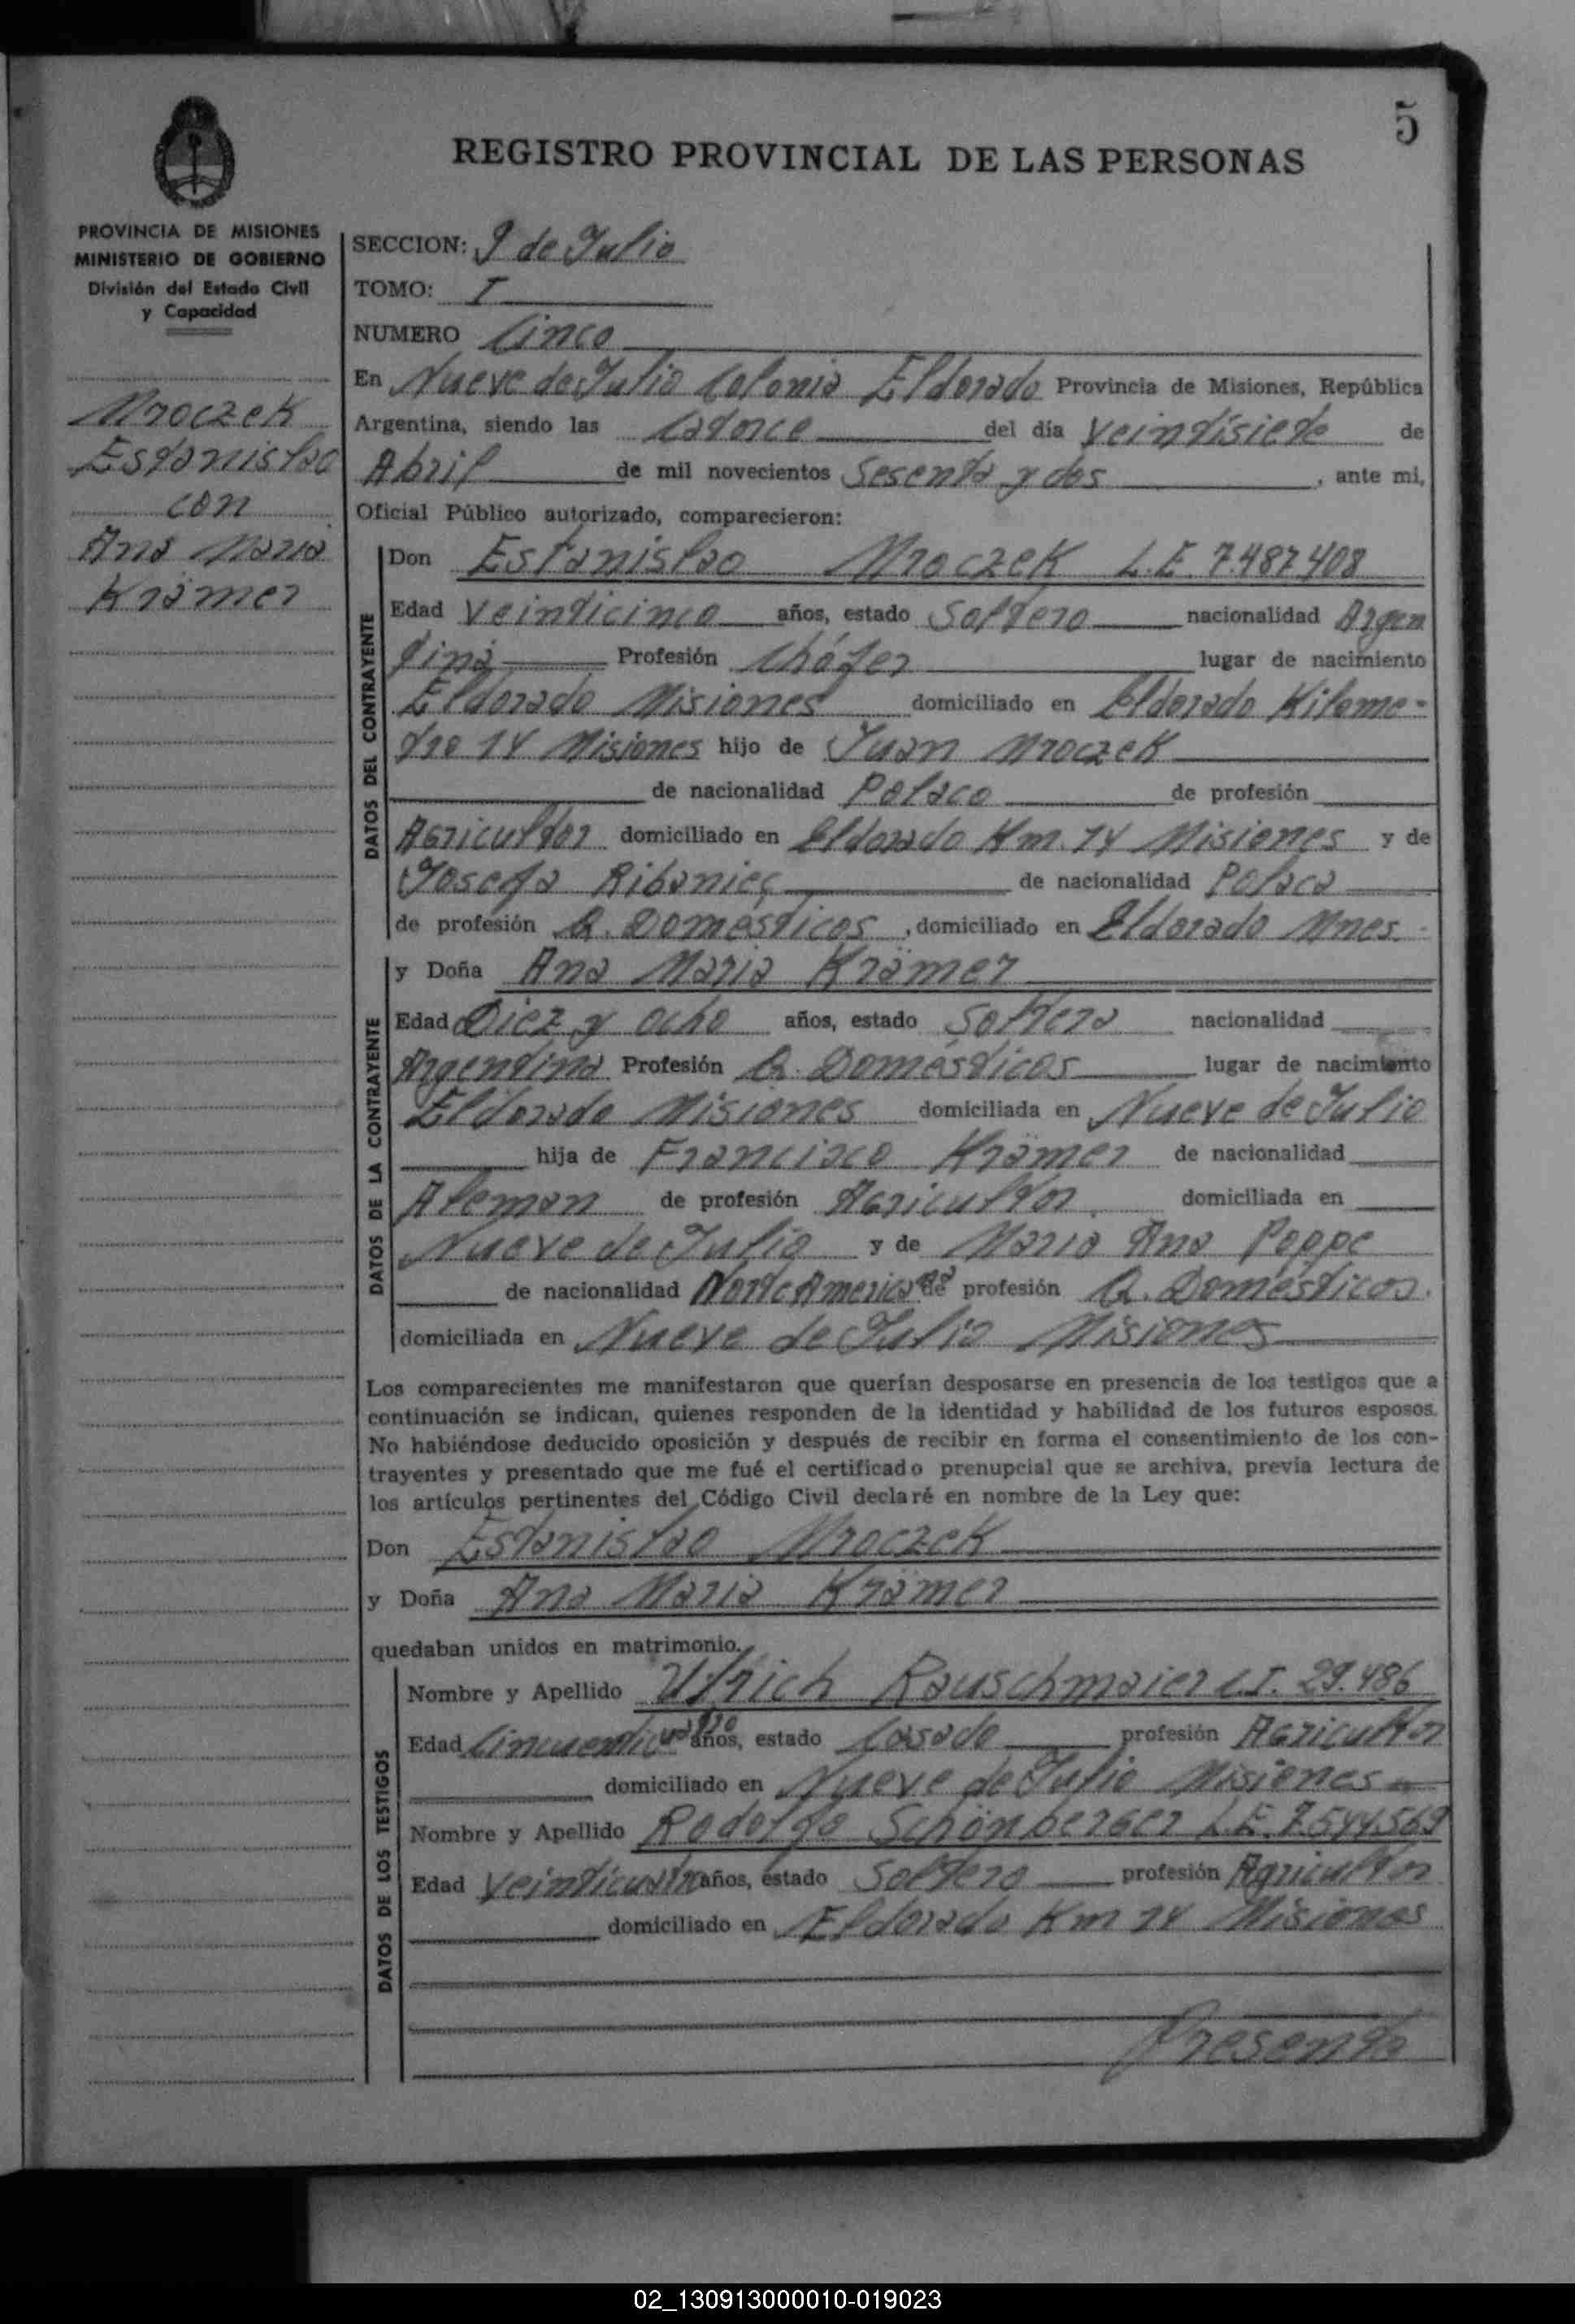 5
REGISTRO PROVINCIAL DE LAS PERSONAS
PROVINCIA DE MISIONES
MINISTERIO DE GOBIERNO
División del Estado Civil
y Capacidad
Mroczek
Estanislao
con
Ana Maria
Krämer
SECCION: 9 de Julio
TOMO: I
NUMERO Cinco
En Nueve de Julio Colonia Eldorado Provincia de Misiones, República
Argentina, siendo las Catorce del día Veintisiete de
Abril de mil novecientos Sesenta y dos, ante mi,
Oficial Público autorizado, comparecieron:
DATOS DEL CONTRAYENTE
Don Estanislao Mroczek L.E. 7487408
Edad Veinticinco años, estado Soltero nacionalidad Argen
tina Profesión Chófer lugar de nacimiento
Eldorado Misiones domiciliado en Eldorado Kilome-
tro 14 Misiones hijo de Juan Mroczek
de nacionalidad Polaco de profesión
Agricultor domiciliado en Eldorado Km. 14 Misiones y de
Josefa Ribaniec de nacionalidad Polaca
de profesión Q. Domésticos, domiciliado en Eldorado Mnes.
DATOS DE LA CONTRAYENTE
y Doña Ana Maria Krämer
Edad Diez y ocho años, estado Soltera nacionalidad
Argentina Profesión Q. Domésticos lugar de nacimiento
Eldorado Misiones domiciliada en Nueve de Julio
hija de Francisco Krämer de nacionalidad
Aleman de profesión Agricultor. domiciliada en
Nueve de Julio y de Maria Ana Poppe
de nacionalidad NorteAmericana de profesión Q. Domésticos.
domiciliada en Nueve de Julio Misiones
Los comparecientes me manifestaron que querían desposarse en presencia de los testigos que a
continuación se indican, quienes responden de la identidad y habilidad de los futuros esposos.
No habiéndose deducido oposición y después de recibir en forma el consentimiento de los con-
trayentes y presentado que me fué el certificado prenupcial que se archiva, previa lectura de
los artículos pertinentes del Código Civil declaré en nombre de la Ley que:
Don Estanislao Mroczek
y Doña Ana Maria Krämer
quedaban unidos en matrimonio.
DATOS DE LOS TESTIGOS
Nombre y Apellido Ulrich Rauschmaier C.I. 29.486
Edad Cincuenticuatro años, estado Casado profesión Agricultor
domiciliado en Nueve de Julio Misiones
Nombre y Apellido Rodolfo Schönberger L.E. 7.544.569
Edad Veinticuatro años, estado Soltero profesión Agricultor
domiciliado en Eldorado Km 14 Misiones
Presento
02_130913000010-019023